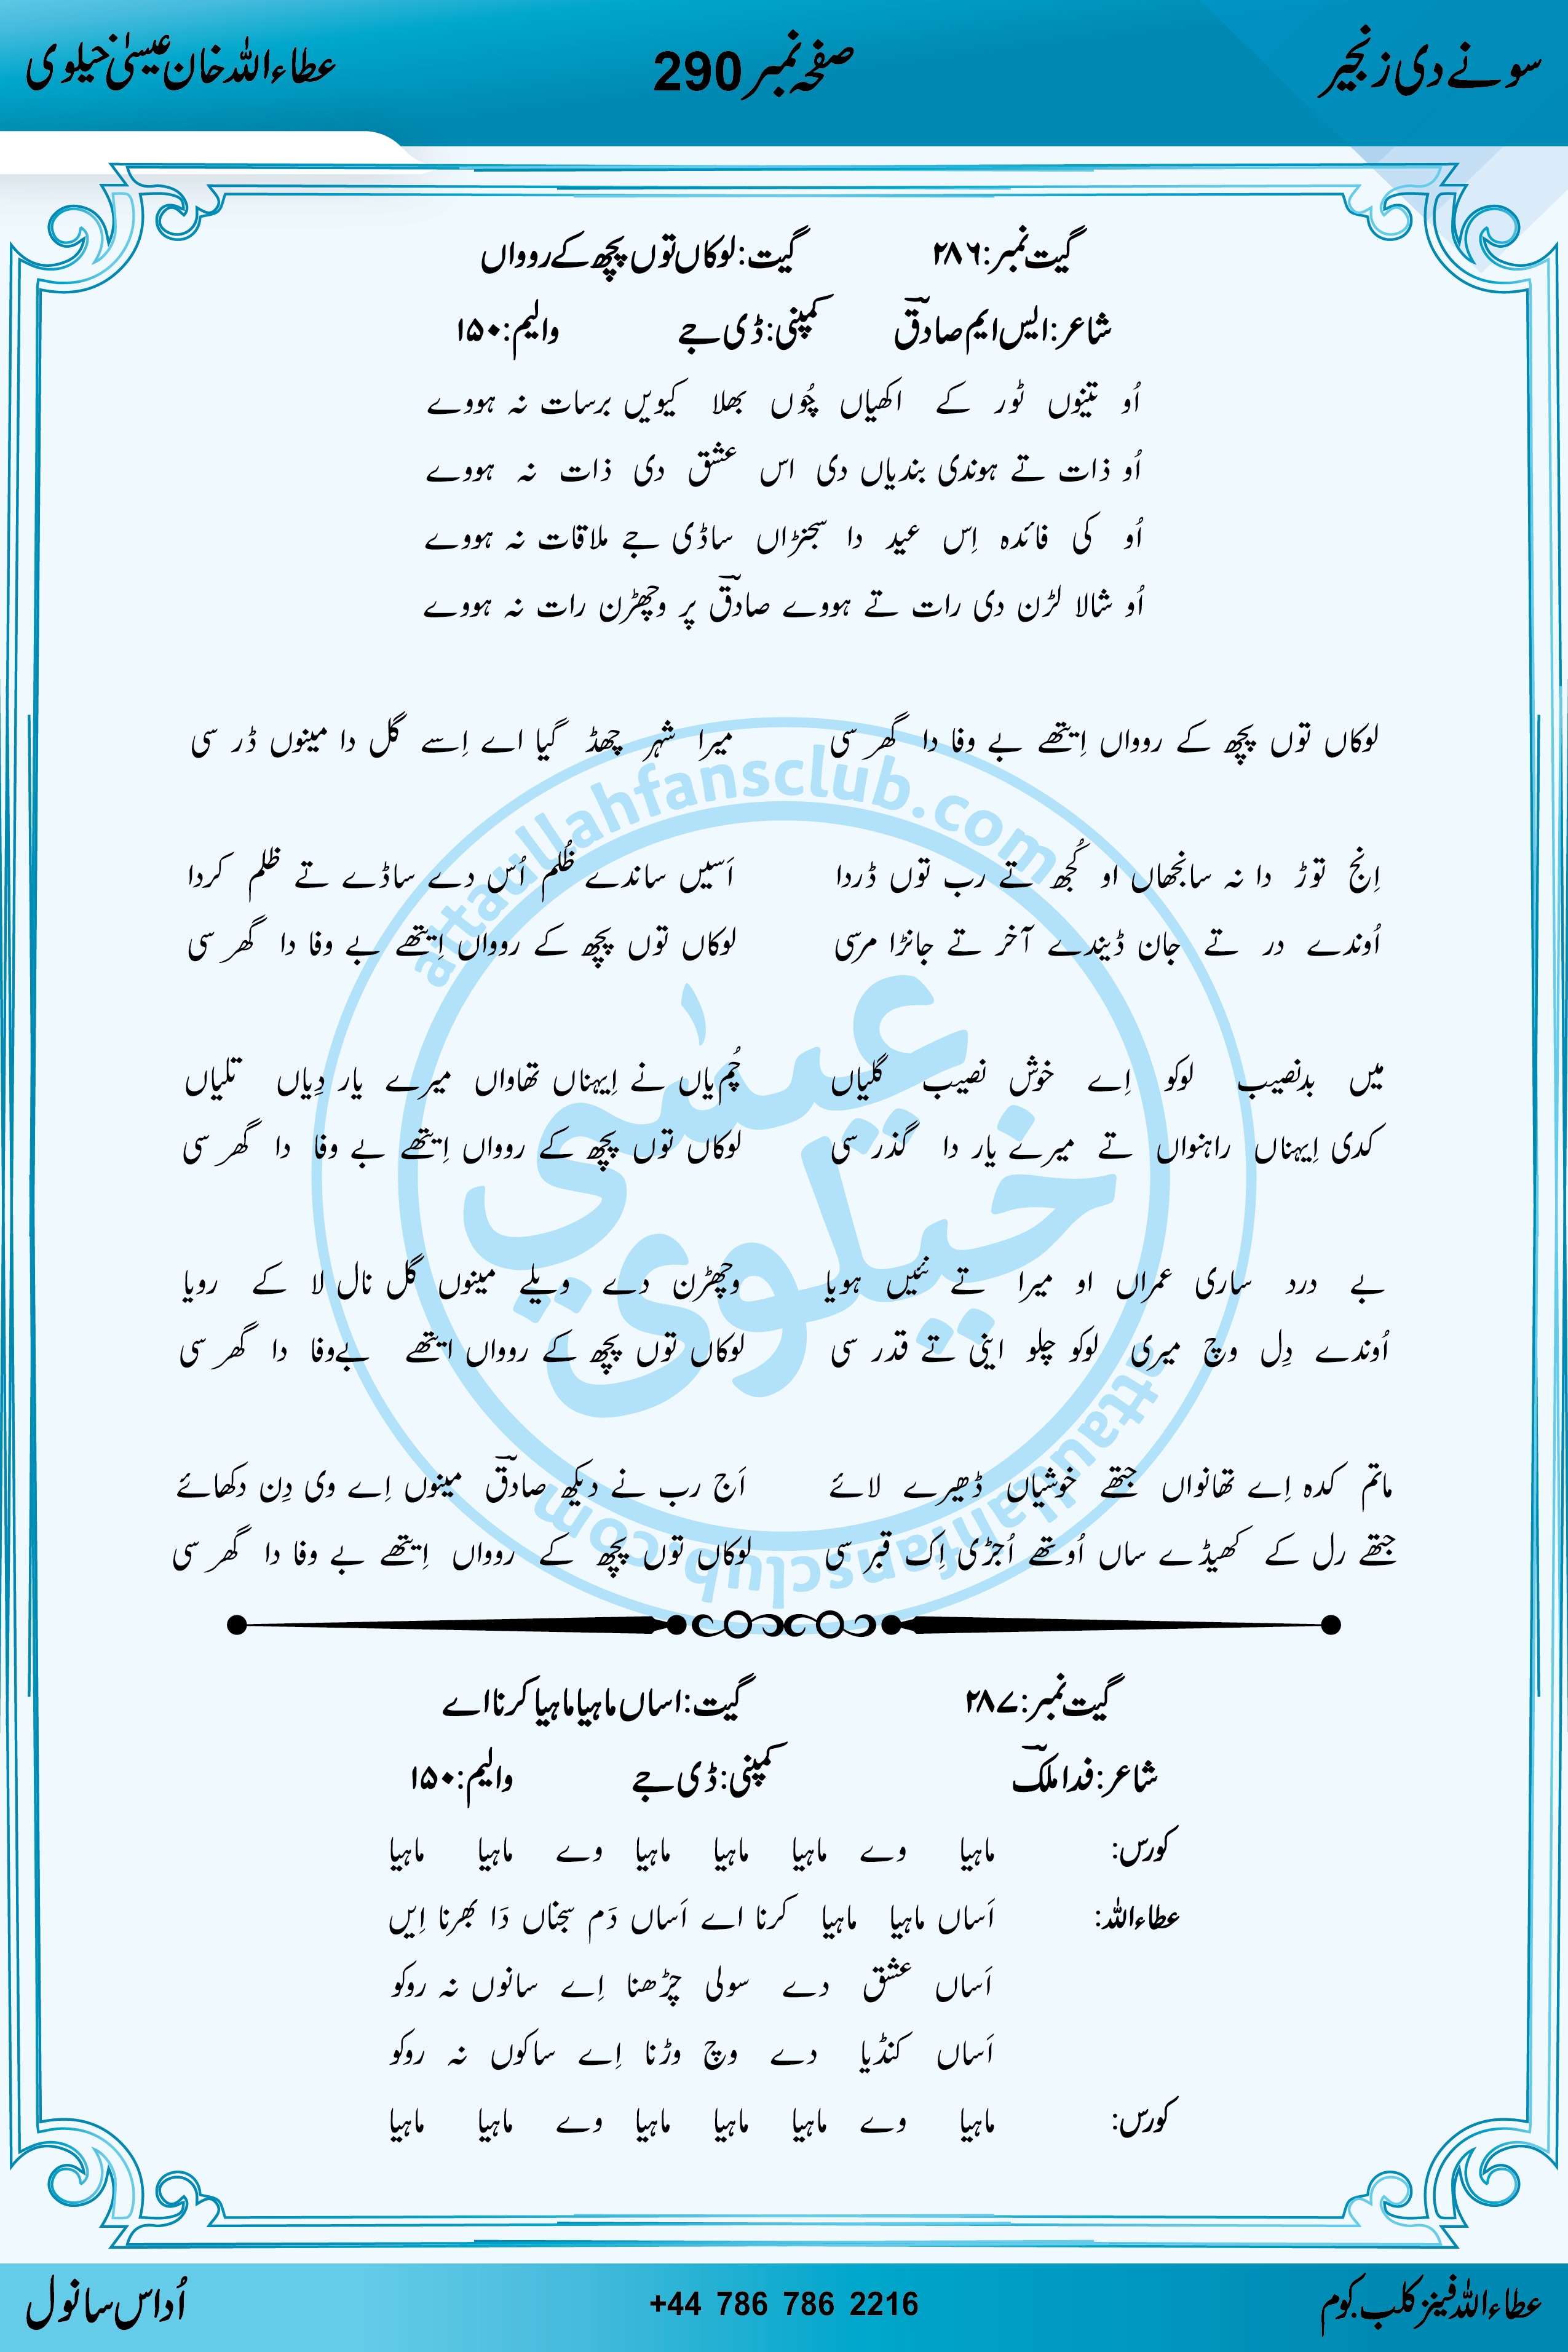 سونے دی زنجیر صفحہ نمبر 290 عطاءاللہ خان عیسیٰ خیلوی
گیت نمبر: ۲۸۶ گیت: لوکاں توں پچھ کے رووواں
شاعر: ایس ایم صادقؔ کمپنی: ڈی جے والیم: ۱۵۰
اُو تینوں ٹور کے اکھیاں چُوں بھلا کیویں برسات نہ ہووے
اُو ذات تے ہوندی بندیاں دی اس عشق دی ذات نہ ہووے
اُو کی فائدہ اِس عید دا سجنڑاں ساڈی جے ملاقات نہ ہووے
اُو شالا لڑن دی رات تے ہووے صادقؔ پر وچھڑن رات نہ ہووے
لوکاں توں پچھ کے روواں اِیتھے بے وفا دا گھر سی میرا شہر چھڈ گیا اے اِسے گل دا مینوں ڈر سی
اِنج توڑ دا نہ سانجھاں او کُجھ تے رب توں ڈردا اَسیں ساندے ظُلم اُس دے ساڈے تے ظلم کردا
اُوندے در تے جان ڈیندے آخر تے جانڑا مرسی لوکاں توں پچھ کے روواں اِیتھے بے وفا دا گھر سی
میں بدنصیب لوکو اِے خوش نصیب گلیاں چُم یاں نے اِیہناں تھاواں میرے یار دِیاں تلیاں
کدی اِیہناں راہنواں تے میرے یار دا گذر سی لوکاں توں پچھ کے روواں اِیتھے بے وفا دا گھر سی
بے درد ساری عمراں او میرا تے نئیں ہویا وچھڑن دے ویلے مینوں گل نال لا کے رویا
اُوندے دِل وچ میری لوکو چلو اینی تے قدر سی لوکاں توں پچھ کے روواں ایتھے بےوفا دا گھر سی
ماتم کدہ اِے تھانواں جتھے خوشیاں ڈھیرے لائے اَج رب نے دیکھ صادقؔ مینوں اِے وی دِن دکھائے
جتھے رل کے کھیڈے ساں اُوتھے اُجڑی اِک قبر سی لوکاں توں پچھ کے روواں اِیتھے بے وفا دا گھر سی
گیت نمبر: ۲۸۷ گیت: اساں ماہیا ماہیا کرنا اے
شاعر: فدا ملکؔ کمپنی: ڈی جے والیم: ۱۵۰
کورس: ماہیا وے ماہیا ماہیا ماہیا وے ماہیا ماہیا
عطاءاللہ: اَساں ماہیا ماہیا کرنا اے اَساں دَم سجناں دَا بھرنا اِیں
اَساں عشق دے سولی چڑھنا اِے سانوں نہ روکو
اَساں کنڈیا دے وچ وڑنا اِے ساکوں نہ روکو
کورس: ماہیا وے ماہیا ماہیا ماہیا وے ماہیا ماہیا
attaullahfansclub.com
عیسٰی
خیلوی
attaullahfansclub.com
عطاءاللہ فینز کلب.کوم +44 786 786 2216 اُداس سانول